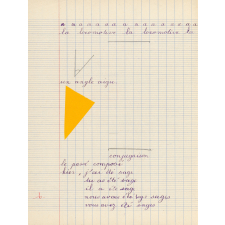 la locomotive la locomotive la
un angle aigu.
conjugaison
le passé composé
hier, j'ai été sage
tu as été sage
il a été sage
nous avons été sages
vous avez été sages